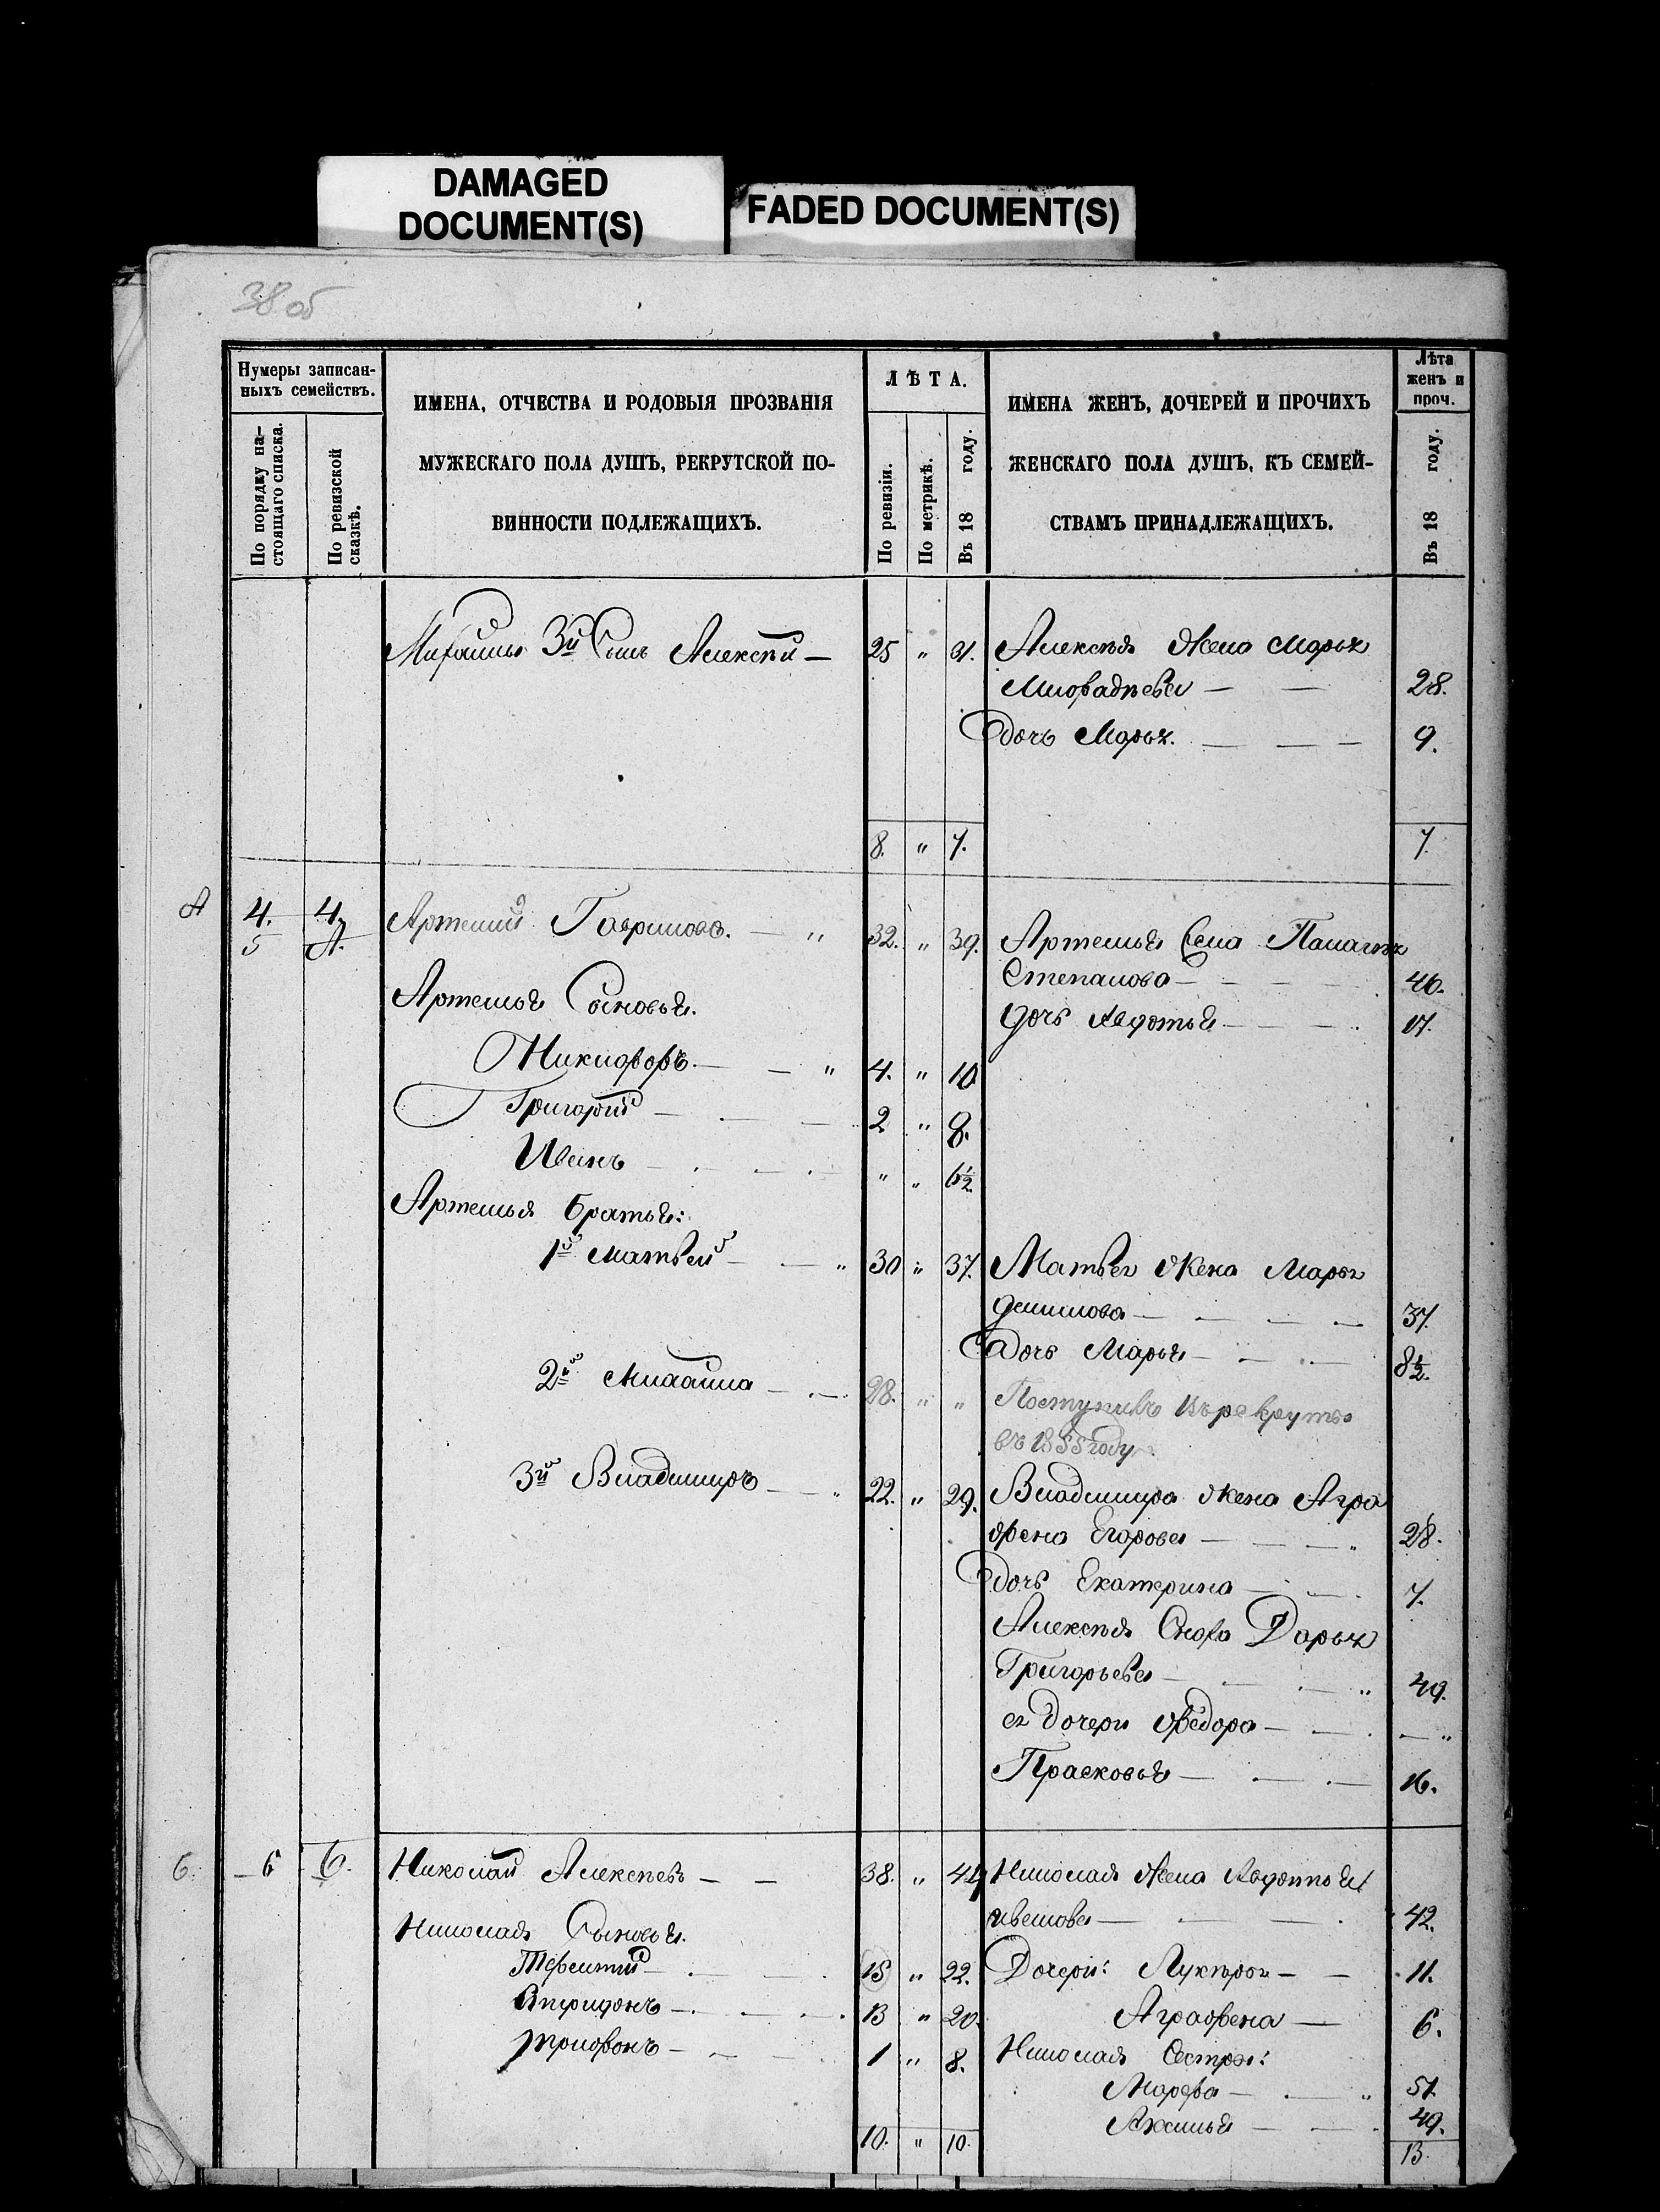 DAMAGED
DOCUMENT(S)
FADED DOCUMENT(S)
38 об
Нумеры записан-
ныхъ семействъ.
По порядку на-
стоящаго списка.
По ревизской
сказкѣ.
ИМЕНА, ОТЧЕСТВА И РОДОВЫЯ ПРОЗВАНІЯ
МУЖЕСКАГО ПОЛА ДУШЪ, РЕКРУТСКОЙ ПО-
ВИННОСТИ ПОДЛЕЖАЩИХЪ.
ЛѢТА.
По ревизіи.
По метрикѣ.
Въ 18 году.
ИМЕНА ЖЕНЪ, ДОЧЕРЕЙ И ПРОЧИХЪ
ЖЕНСКАГО ПОЛА ДУШЪ, КЪ СЕМЕЙ-
СТВАМЪ ПРИНАДЛЕЖАЩИХЪ.
Лѣта
женъ и
проч.
Въ 18 году.
Михайлы 3й Сынъ Алексѣй — 25 „ Алексѣя Жена Марья
— — 28.
дочь Марья. — — — 9.
8. „ 7. 7.
4. 4. Артемий Гаврилова. — „ 32. „ 39. Артемья Жена
5
Степанова — — — 46.
Артемья Сыновья.
дочь Авдотья — — — 17.
Никифоръ. — — „ 4. „ 10
Григорий — — — 2 „ 8.
Иванъ — — — „ „ 6½
Артемья братья:
1й Матвей — — „ 30 „ 37. Матвея Жена Марья
данилова — — — — 37.
дочь Марья — — — 8½.
2й Михайла — — 28. „ „ Поступилъ въ рекруты
въ 1855 году
3й Владимиръ — — „ 22. „ 29. Владимира жена Агра
фена Егорова — — — „ 28.
дочь Екатерина — — 7.
Алексѣя Сноха Дарья
Григорьева — — — „ 49.
ея дочери Федора — — — „
Прасковья — — — 16.
6. 6 6. Николай Алексѣевъ — — 38. „ Николая Жена Авдотья
— — — 42.
Николая Сыновья.
Терентий — — — 15 „ 22. Дочери: — — 11.
Спиридонъ — — — 13 „ 20. Аграфена — 6.
Трифонъ — — — 1 „ 8. Николая Сестры:
Марфа — — „ 51.
Аксинья — — 49.
10. „ 10. 13.